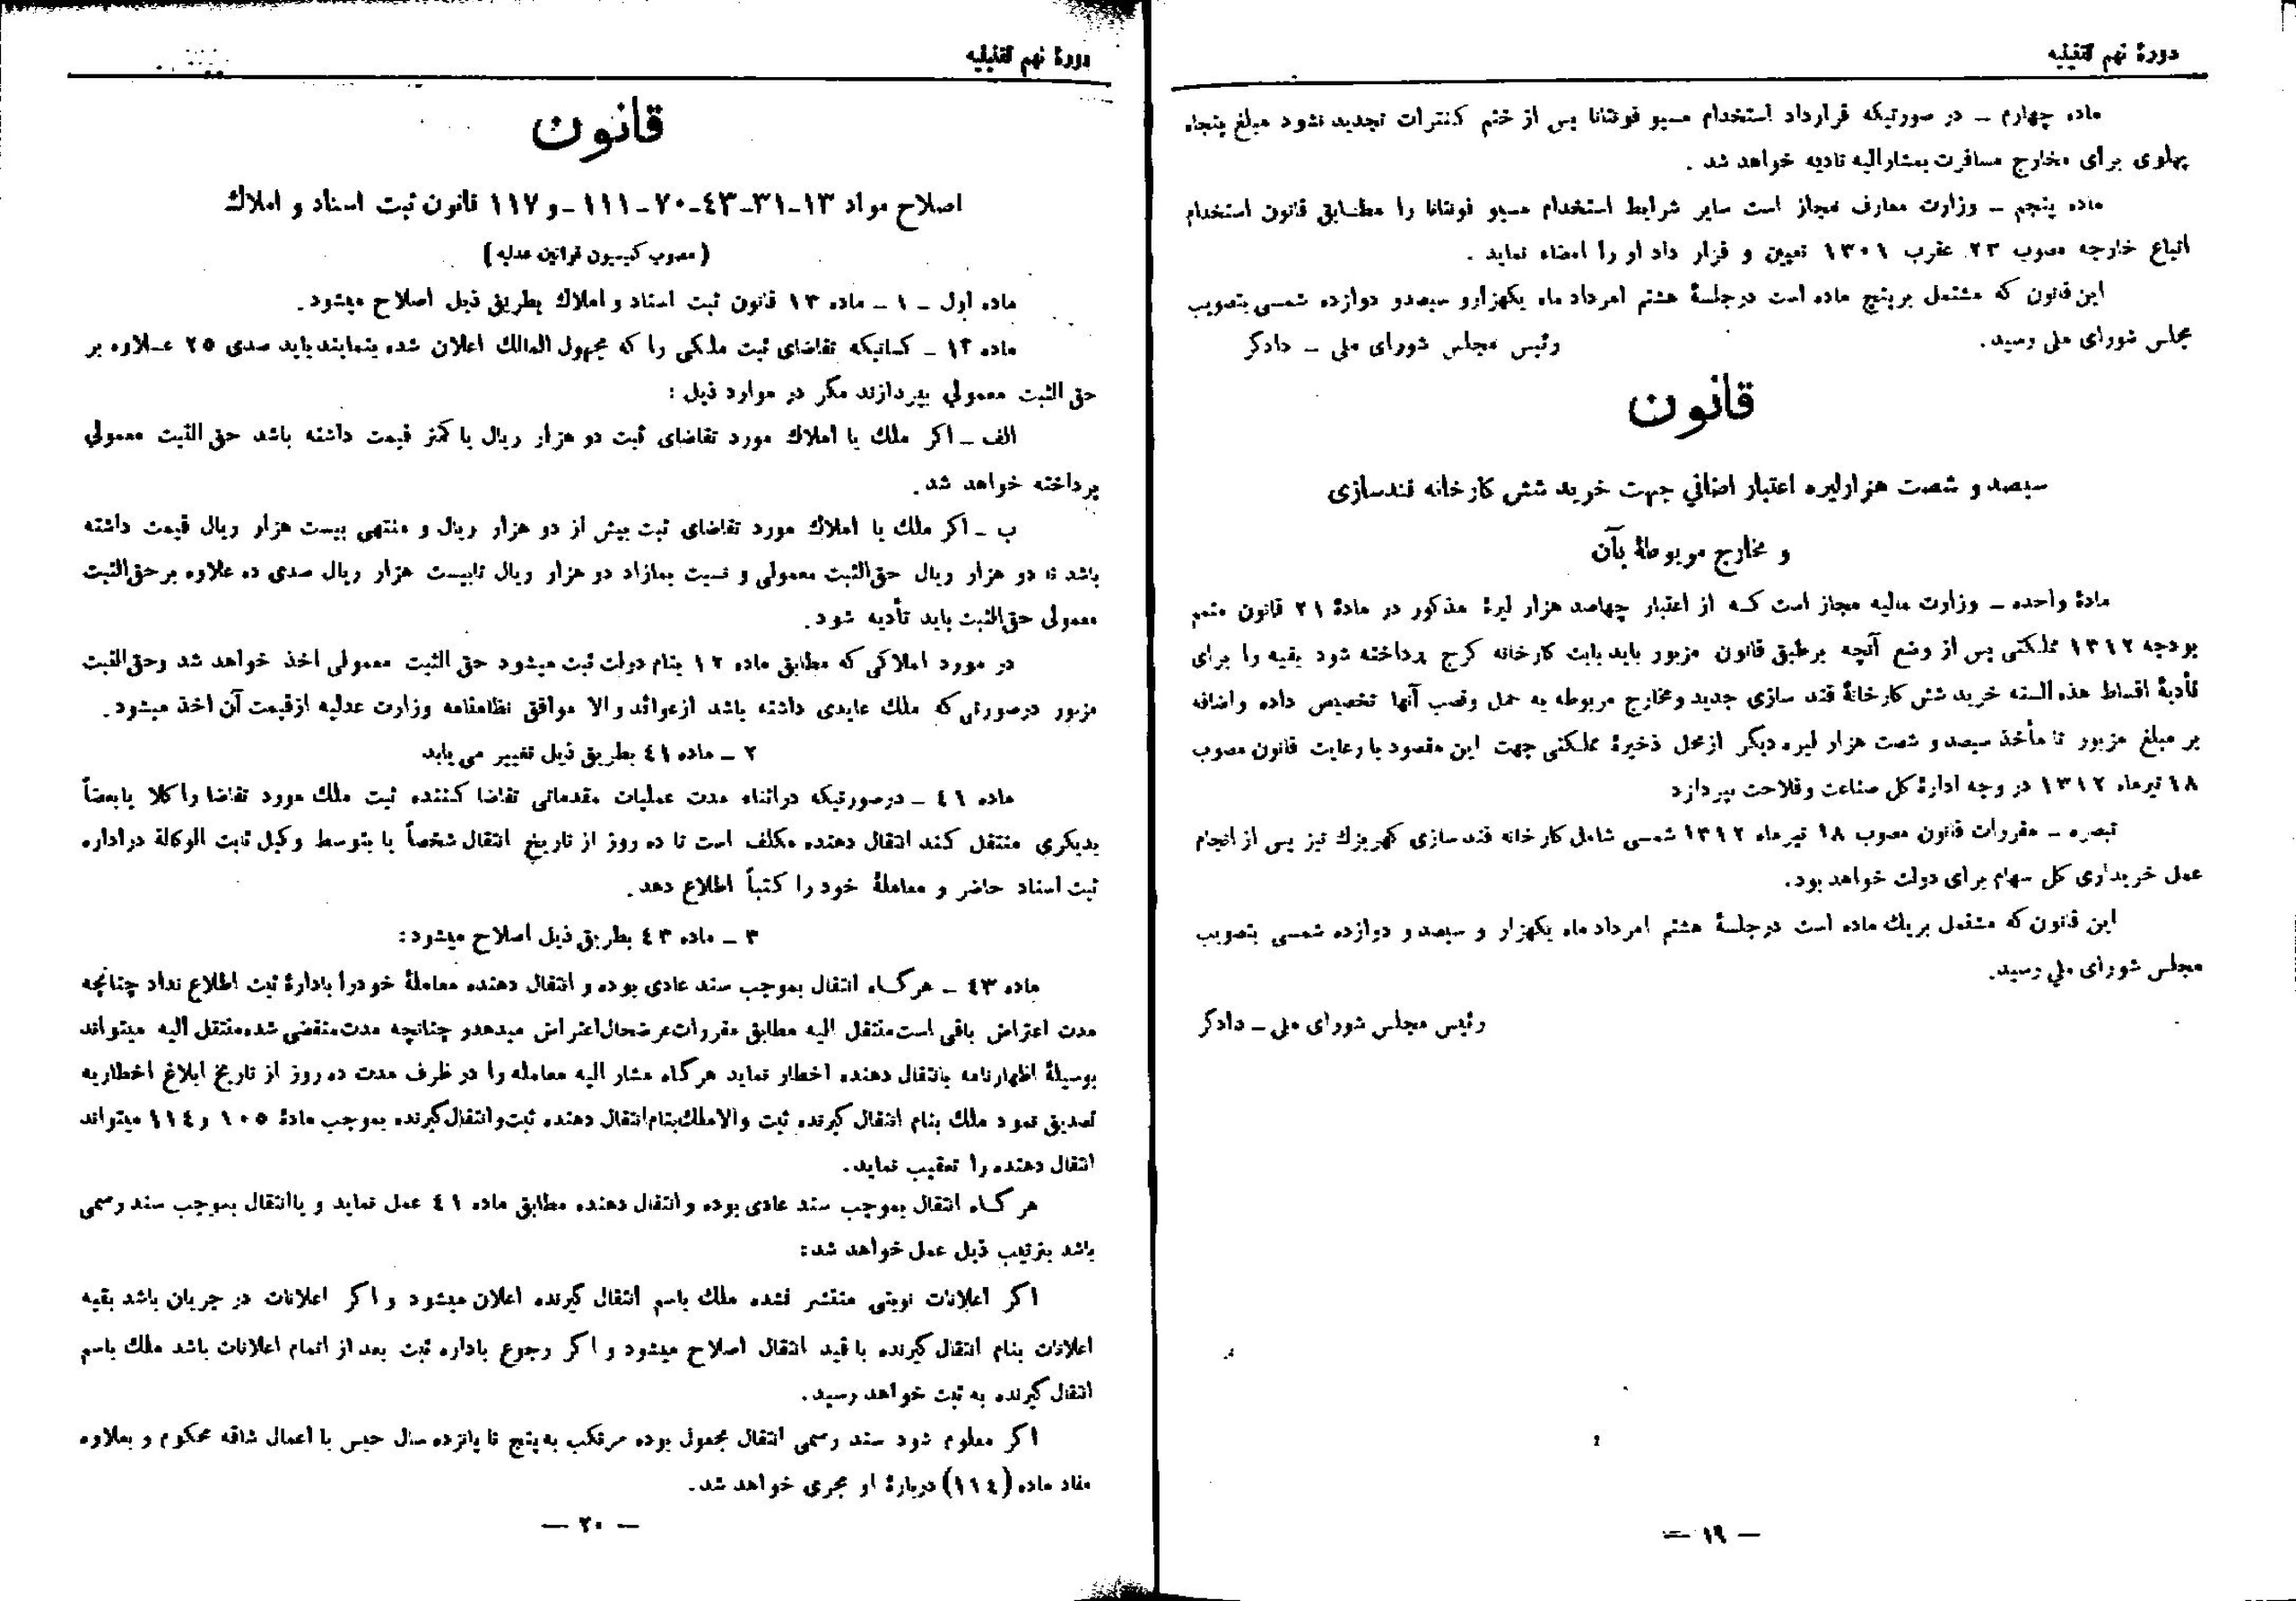 دورهٔ نهم تقنینیه
ماده چهارم ـ در صورتیکه قرارداد استخدام مسیو فونتانا پس از ختم کنترات تجدید نشود مبلغ پنجاه
پهلوی برای مخارج مسافرت بمشارالیه تادیه خواهد شد .
ماده پنجم ـ وزارت معارف مجاز است سایر شرایط استخدام مسیو فونتانا را مطابق قانون استخدام
اتباع خارجه مصوب ۲۳ عقرب ۱۳۰۱ تعیین و قرار داد او را امضاء نماید .
این قانون که مشتمل بر پنج ماده است در جلسهٔ هشتم امرداد ماه یکهزار و سیصدو دوازده شمسی بتصویب
مجلس شورای ملی رسید.
رئیس مجلس شورای ملی ـ دادگر
قانون
سیصد و شصت هزار لیره اعتبار اضافی جهت خرید شش کارخانه قندسازی
و مخارج مربوطهٔ بآن
مادهٔ واحده ـ وزارت مالیه مجاز است کـه از اعتبار چهاصد هزار لیرهٔ مذکور در مادهٔ ۲۱ قانون متمم
بودجه ۱۳۱۲ مملکتی پس از وضع آنچه بر طبق قانون مزبور باید بابت کارخانه کرج پرداخته شود بقیه را برای
تأدیهٔ اقساط هذه السنه خرید شش کارخانهٔ قند سازی جدید و مخارج مربوطه به حمل و نصب آنها تخصیص داده و اضافه
بر مبلغ مزبور تا مأخذ سیصد و شصت هزار لیره دیگر از محل ذخیرهٔ مملکتی جهت این مقصود با رعایت قانون مصوب
۱۸ تیرماه ۱۳۱۲ در وجه ادارهٔ کل صناعت و فلاحت بپردازد
تبصره ـ مقررات قانون مصوب ۱۸ تیر ماه ۱۳۱۲ شمسی شامل کارخانه قند سازی کهریزك نیز پس از انجام
عمل خریداری کل سهام برای دولت خواهد بود.
این قانون که مشتمل بر یك ماده است در جلسهٔ هشتم امرداد ماه یکهزار و سیصد و دوازده شمسی بتصویب
مجلس شورای ملی رسید.
رئیس مجلس شورای ملی ـ دادگر
— ۱۹ —
دورهٔ نهم تقنینیه
قانون
اصلاح مواد ۱۳-۳۱-٤۳-۷۰-۱۱۱-و ۱۱۷ قانون ثبت اسناد و املاك
(مصوب کمیسیون قوانین عدلیه)
ماده اول ـ ۱ ـ ماده ۱۳ قانون ثبت اسناد و املاك بطریق ذیل اصلاح میشود.
ماده ۱۳ ـ کسانیکه تقاضای ثبت ملکی را که مجهول المالك اعلان شده بنمایند باید صدی ۲۵ عـلاوه بر
حق الثبت معمولی بپردازند مگر در موارد ذیل :
الف ـ اگر ملك یا املاك مورد تقاضای ثبت دو هزار ریال یا کمتر قیمت داشته باشد حق الثبت معمولی
پرداخته خواهد شد.
ب ـ اگر ملك یا املاك مورد تقاضای ثبت بیش از دو هزار ریال و منتهی بیست هزار ریال قیمت داشته
باشد تا دو هزار ریال حق‌الثبت معمولی و نسبت بمازاد دو هزار ریال تابیست هزار ریال صدی ده علاوه بر حق‌الثبت
معمولی حق‌الثبت باید تأدیه شود.
در مورد املاکی که مطابق ماده ۱۲ بنام دولت ثبت میشود حق الثبت معمولی اخذ خواهد شد وحق‌الثبت
مزبور درصورتی که ملك عایدی داشته باشد ازعوائد و الا موافق نظامنامه وزارت عدلیه ازقیمت آن اخذ میشود.
۲ ـ ماده ٤۱ بطریق ذیل تغییر می یابد
ماده ٤۱ ـ درصورتیکه دراثناء مدت عملیات مقدماتی تقاضا کننده ثبت ملك مورد تقاضا را کلا یا بعضاً
بدیگری منتقل کند انتقال دهنده مکلف است تا ده روز از تاریخ انتقال شخصاً یا بتوسط وکیل ثابت الوکالة دراداره
ثبت اسناد حاضر و معاملهٔ خود را کتباً اطلاع دهد.
۳ ـ ماده ٤۳ بطریق ذیل اصلاح میشود:
ماده ٤۳ ـ هرگـاه انتقال بموجب سند عادی بوده و انتقال دهنده معاملهٔ خودرا بادارهٔ ثبت اطلاع نداد چنانچه
مدت اعتراض باقی است منتقل الیه مطابق مقررات عرضحال اعتراض میدهدو چنانچه مدت منقضی شده منتقل الیه میتواند
بوسیلهٔ اظهارنامه بانتقال دهنده اخطار نماید هرگاه مشار الیه معامله را در ظرف مدت ده روز از تاریخ ابلاغ اخطاریه
تصدیق نمود ملك بنام انتقال گیرنده ثبت والاملك بنام انتقال دهنده ثبت و انتقال گیرنده بموجب مادهٔ ۱۰۵ و ۱۱٤ میتواند
انتقال دهنده را تعقیب نماید.
هر گـاه انتقال بموجب سند عادی بوده و انتقال دهنده مطابق ماده ٤۱ عمل نماید و یا انتقال بموجب سند رسمی
باشد بترتیب ذیل عمل خواهد شد:
اگر اعلانات نوبتی منتشر نشده ملك باسم انتقال گیرنده اعلان میشود و اگر اعلانات در جریان باشد بقیه
اعلانات بنام انتقال گیرنده با قید انتقال اصلاح میشود و اگر رجوع باداره ثبت بعد از اتمام اعلانات باشد ملك باسم
انتقال گیرنده به ثبت خواهد رسید.
اگر معلوم شود سند رسمی انتقال مجعول بوده مرتکب به پنج تا پانزده سال حبس با اعمال شاقه محکوم و بعلاوه
مفاد ماده (۱۱٤) دربارهٔ او مجری خواهد شد.
— ۲۰ —